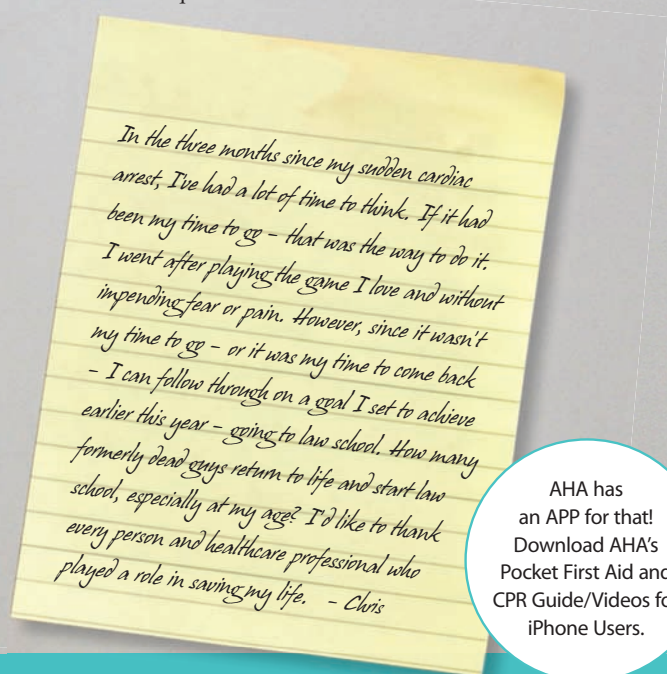 In the three months since my sudden cardiac
arrest, I've had a lot of time to think. If it had
been my time to go – that was the way to do it.
I went after playing the game I love and without
impending fear or pain. However, since it wasn't
my time to go – or it was my time to come back
– I can follow through on a goal I set to achieve
earlier this year – going to law school. How many
formerly dead guys return to life and start law
school, especially at my age? I'd like to thank
every person and healthcare professional who
played a role in saving my life. – Chris
AHA has
an APP for that!
Download AHA's
Pocket First Aid and
CPR Guide/Videos fo
iPhone Users.